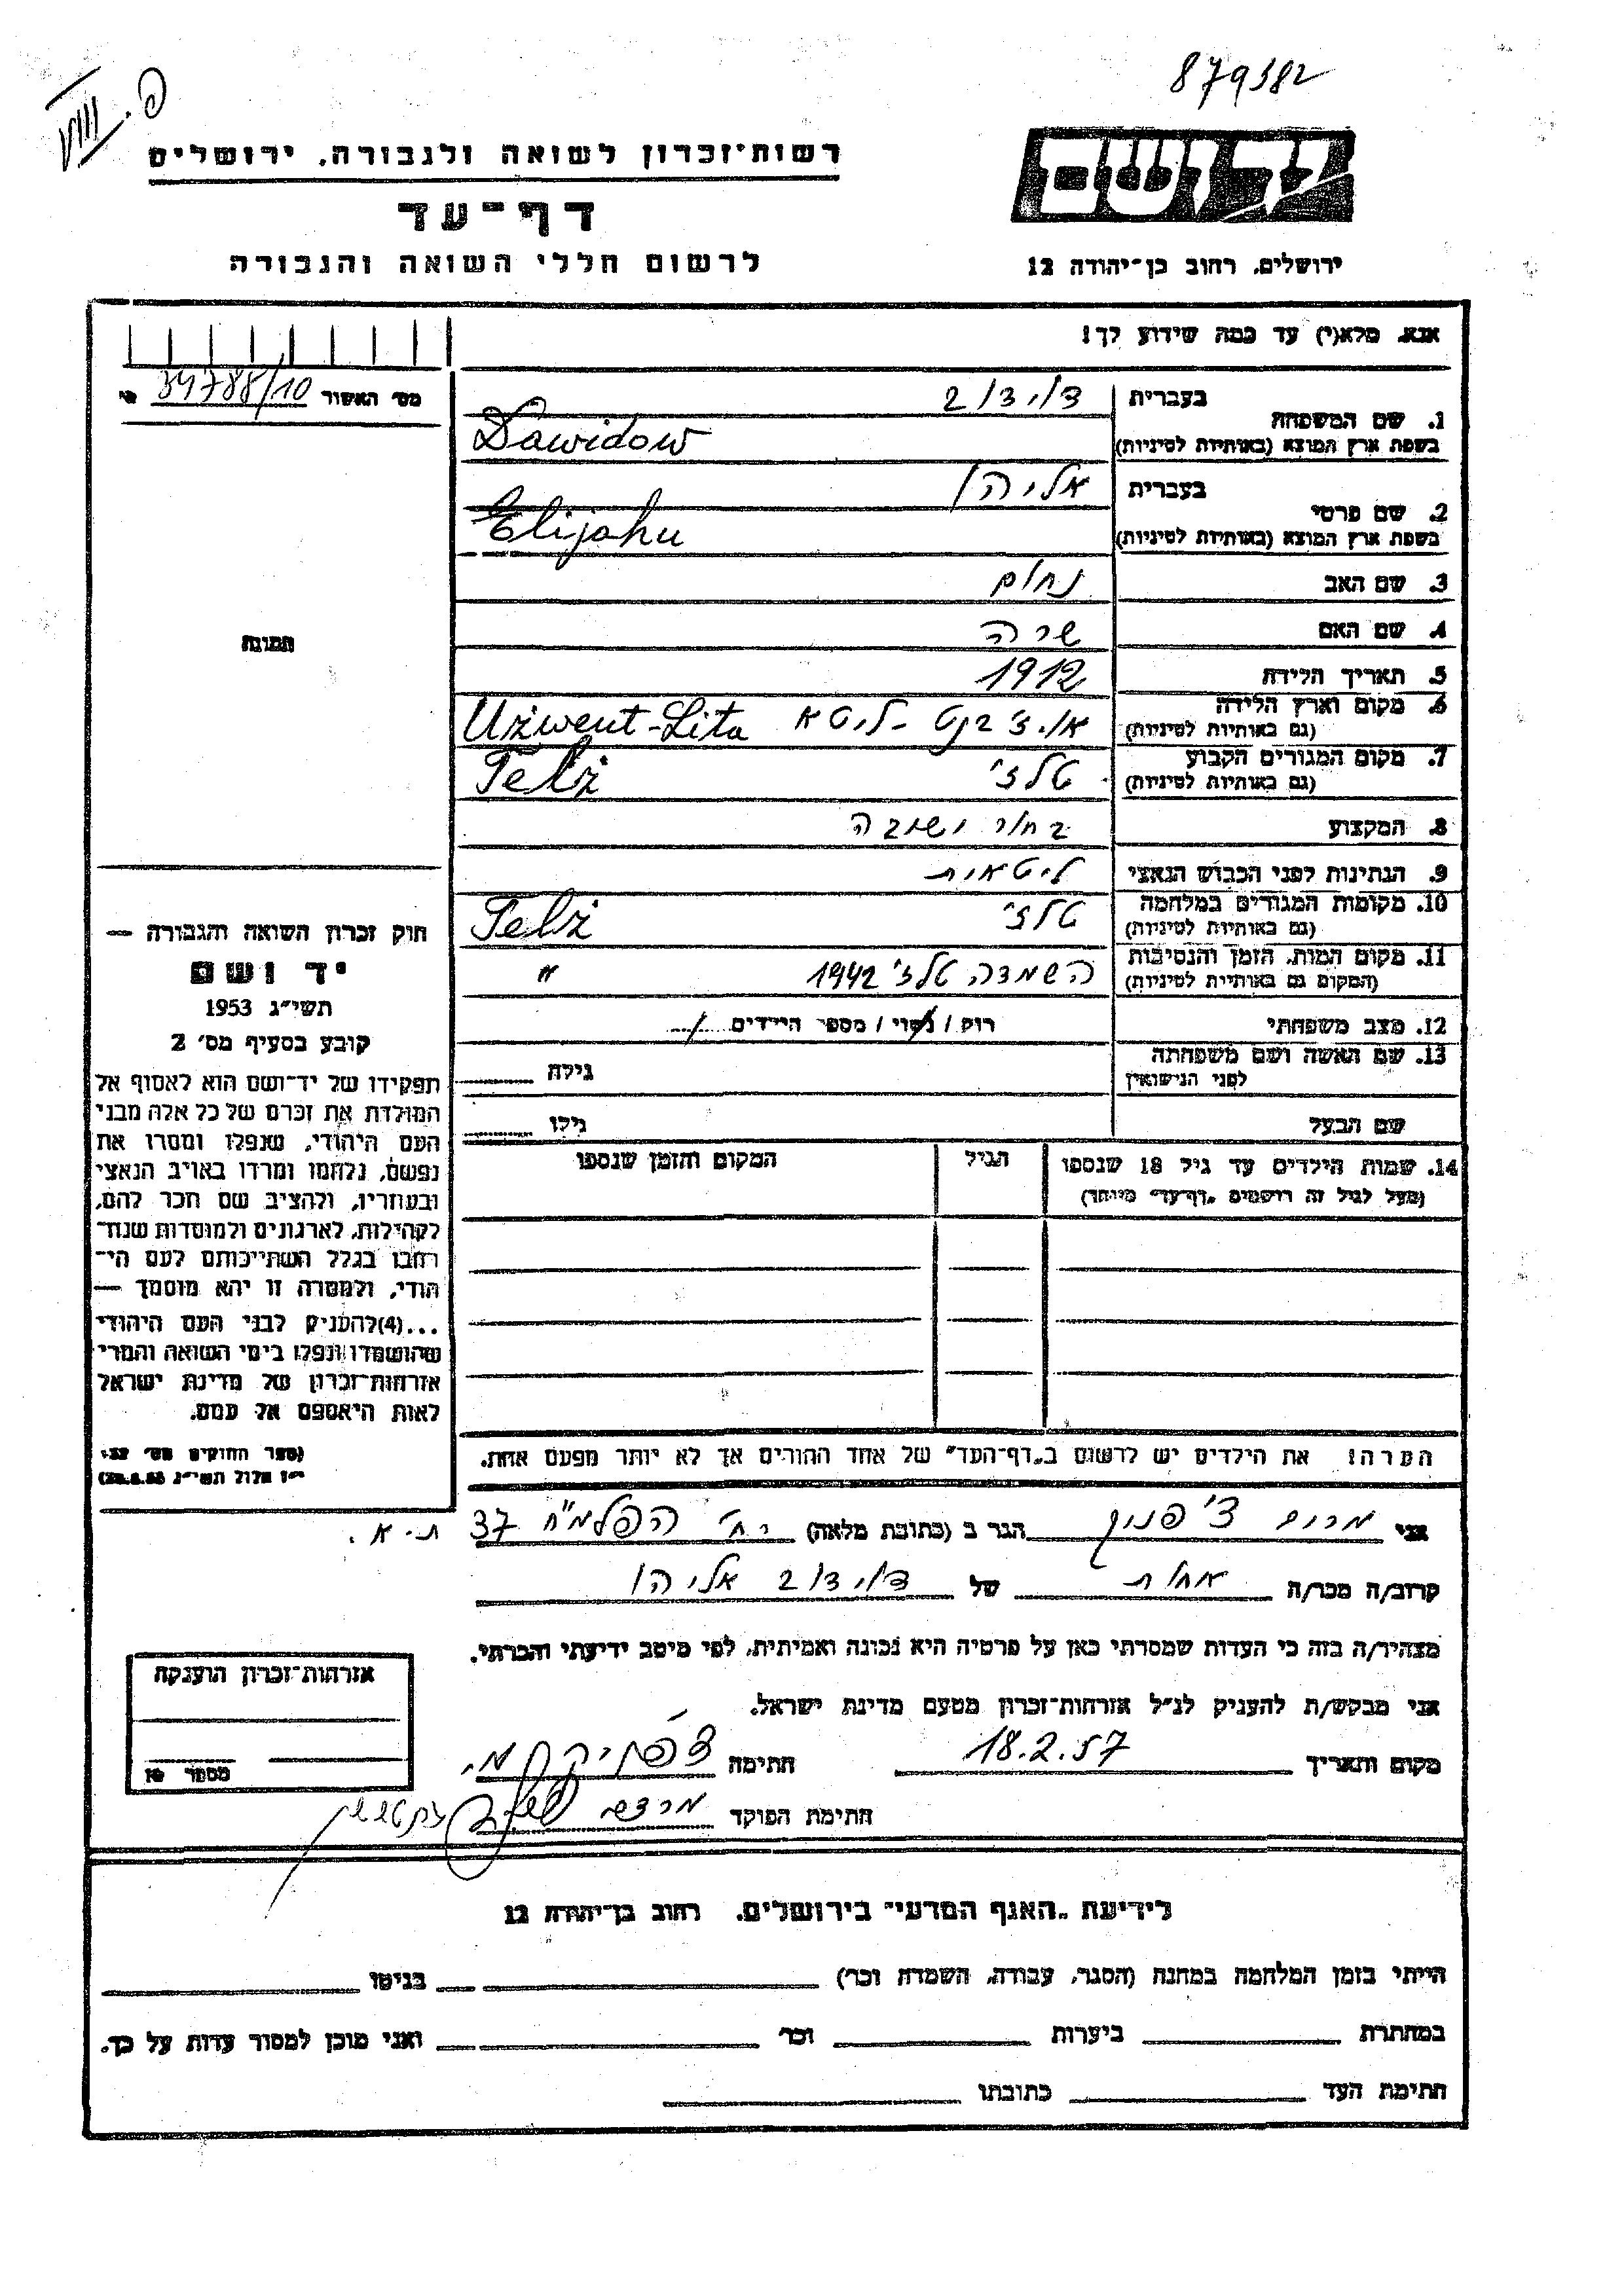 879382
פ. VIII
יד ושם
ירושלים, רחוב בן-יהודה 12
רשות-זכרון לשואה ולגבורה, ירושלים
דף-עד
לרשום חללי השואה והגבורה
אנא, מלא(י) עד כמה שידוע לך!
מס' האשור 34788/10
1. שם המשפחה בעברית דוידוב
בשפת ארץ המוצא (באותיות לטיניות) Dawidow
2. שם פרטי בעברית אליהו
בשפת ארץ המוצא (באותיות לטיניות) Elijahu
3. שם האב נחום
4. שם האם שרה
5. תאריך הלידה 1912
6. מקום וארץ הלידה (גם באותיות לטיניות) או.ז'בנט - ליטא Użwent-Lita
7. מקום המגורים הקבוע (גם באותיות לטיניות) טלז' Telż
8. המקצוע בחור ישיבה
9. הנתינות לפני הכבוש הנאצי ליטאית
10. מקומות המגורים במלחמה (גם באותיות לטיניות) טלז' Telż
11. מקום המות, הזמן והנסיבות (המקום גם באותיות לטיניות) השמדה טלז' 1942 "
12. מצב משפחתי רוק / נשוי / מספר הילדים
13. שם האשה ושם משפחתה לפני הנישואין גילה
שם הבעל גילו
14. שמות הילדים עד גיל 18 שנספו הגיל המקום והזמן שנספו
(מעל לגיל זה רושמים „דף-עד" מיוחד)
הערה! את הילדים יש לרשום ב„דף-העד" של אחד ההורים אך לא יותר מפעם אחת.
תמונה
חוק זכרון השואה והגבורה —
יד ושם
תשי"ג 1953
קובע בסעיף מס' 2
תפקידו של יד-ושם הוא לאסוף אל
המולדת את זכרם של כל אלה מבני
העם היהודי, שנפלו ומסרו את
נפשם, נלחמו ומרדו באויב הנאצי
ובעוזריו, ולהציב שם וזכר להם,
לקהילות, לארגונים ולמוסדות שנח-
רבו בגלל השתייכותם לעם הי-
הודי, ולמטרה זו יהא מוסמך —
...(4) להעניק לבני העם היהודי
שהושמדו ונפלו בימי השואה והמרי
אזרחות-זכרון של מדינת ישראל
לאות היאספם אל עמם.
(ספר החוקים מס' 132,
י"ז אלול תשי"ג 28.8.53)
אני מרים הגר ב (כתובת מלאה) רח' הפלמ"ח 37 ת-א.
קרוב/ה מכר/ה אחות של דוידוב אליהו
מצהיר/ה בזה כי העדות שמסרתי כאן על פרטיה היא נכונה ואמיתית, לפי מיטב ידיעתי והכרתי.
אני מבקש/ת להעניק לנ"ל אזרחות-זכרון מטעם מדינת ישראל.
מקום ותאריך 18.2.57 חתימה
חתימת הפוקד
אזרחות-זכרון הוענקה
מספר
לידיעת „האגף המדעי" בירושלים, רחוב בן-יהודה 12
הייתי בזמן המלחמה במחנה (הסגר, עבודה, השמדה וכו') בגיטו
במחתרת ביערות וכו' ואני מוכן למסור עדות על כך.
חתימת העד כתובתו